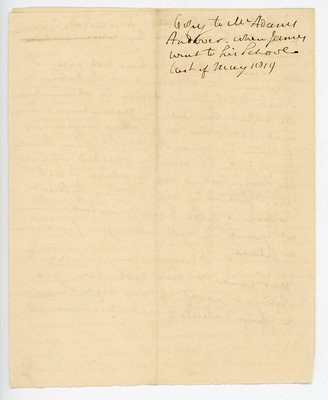 Copy to Mr Adams
Andover. when James
went to his School
last of May 1819